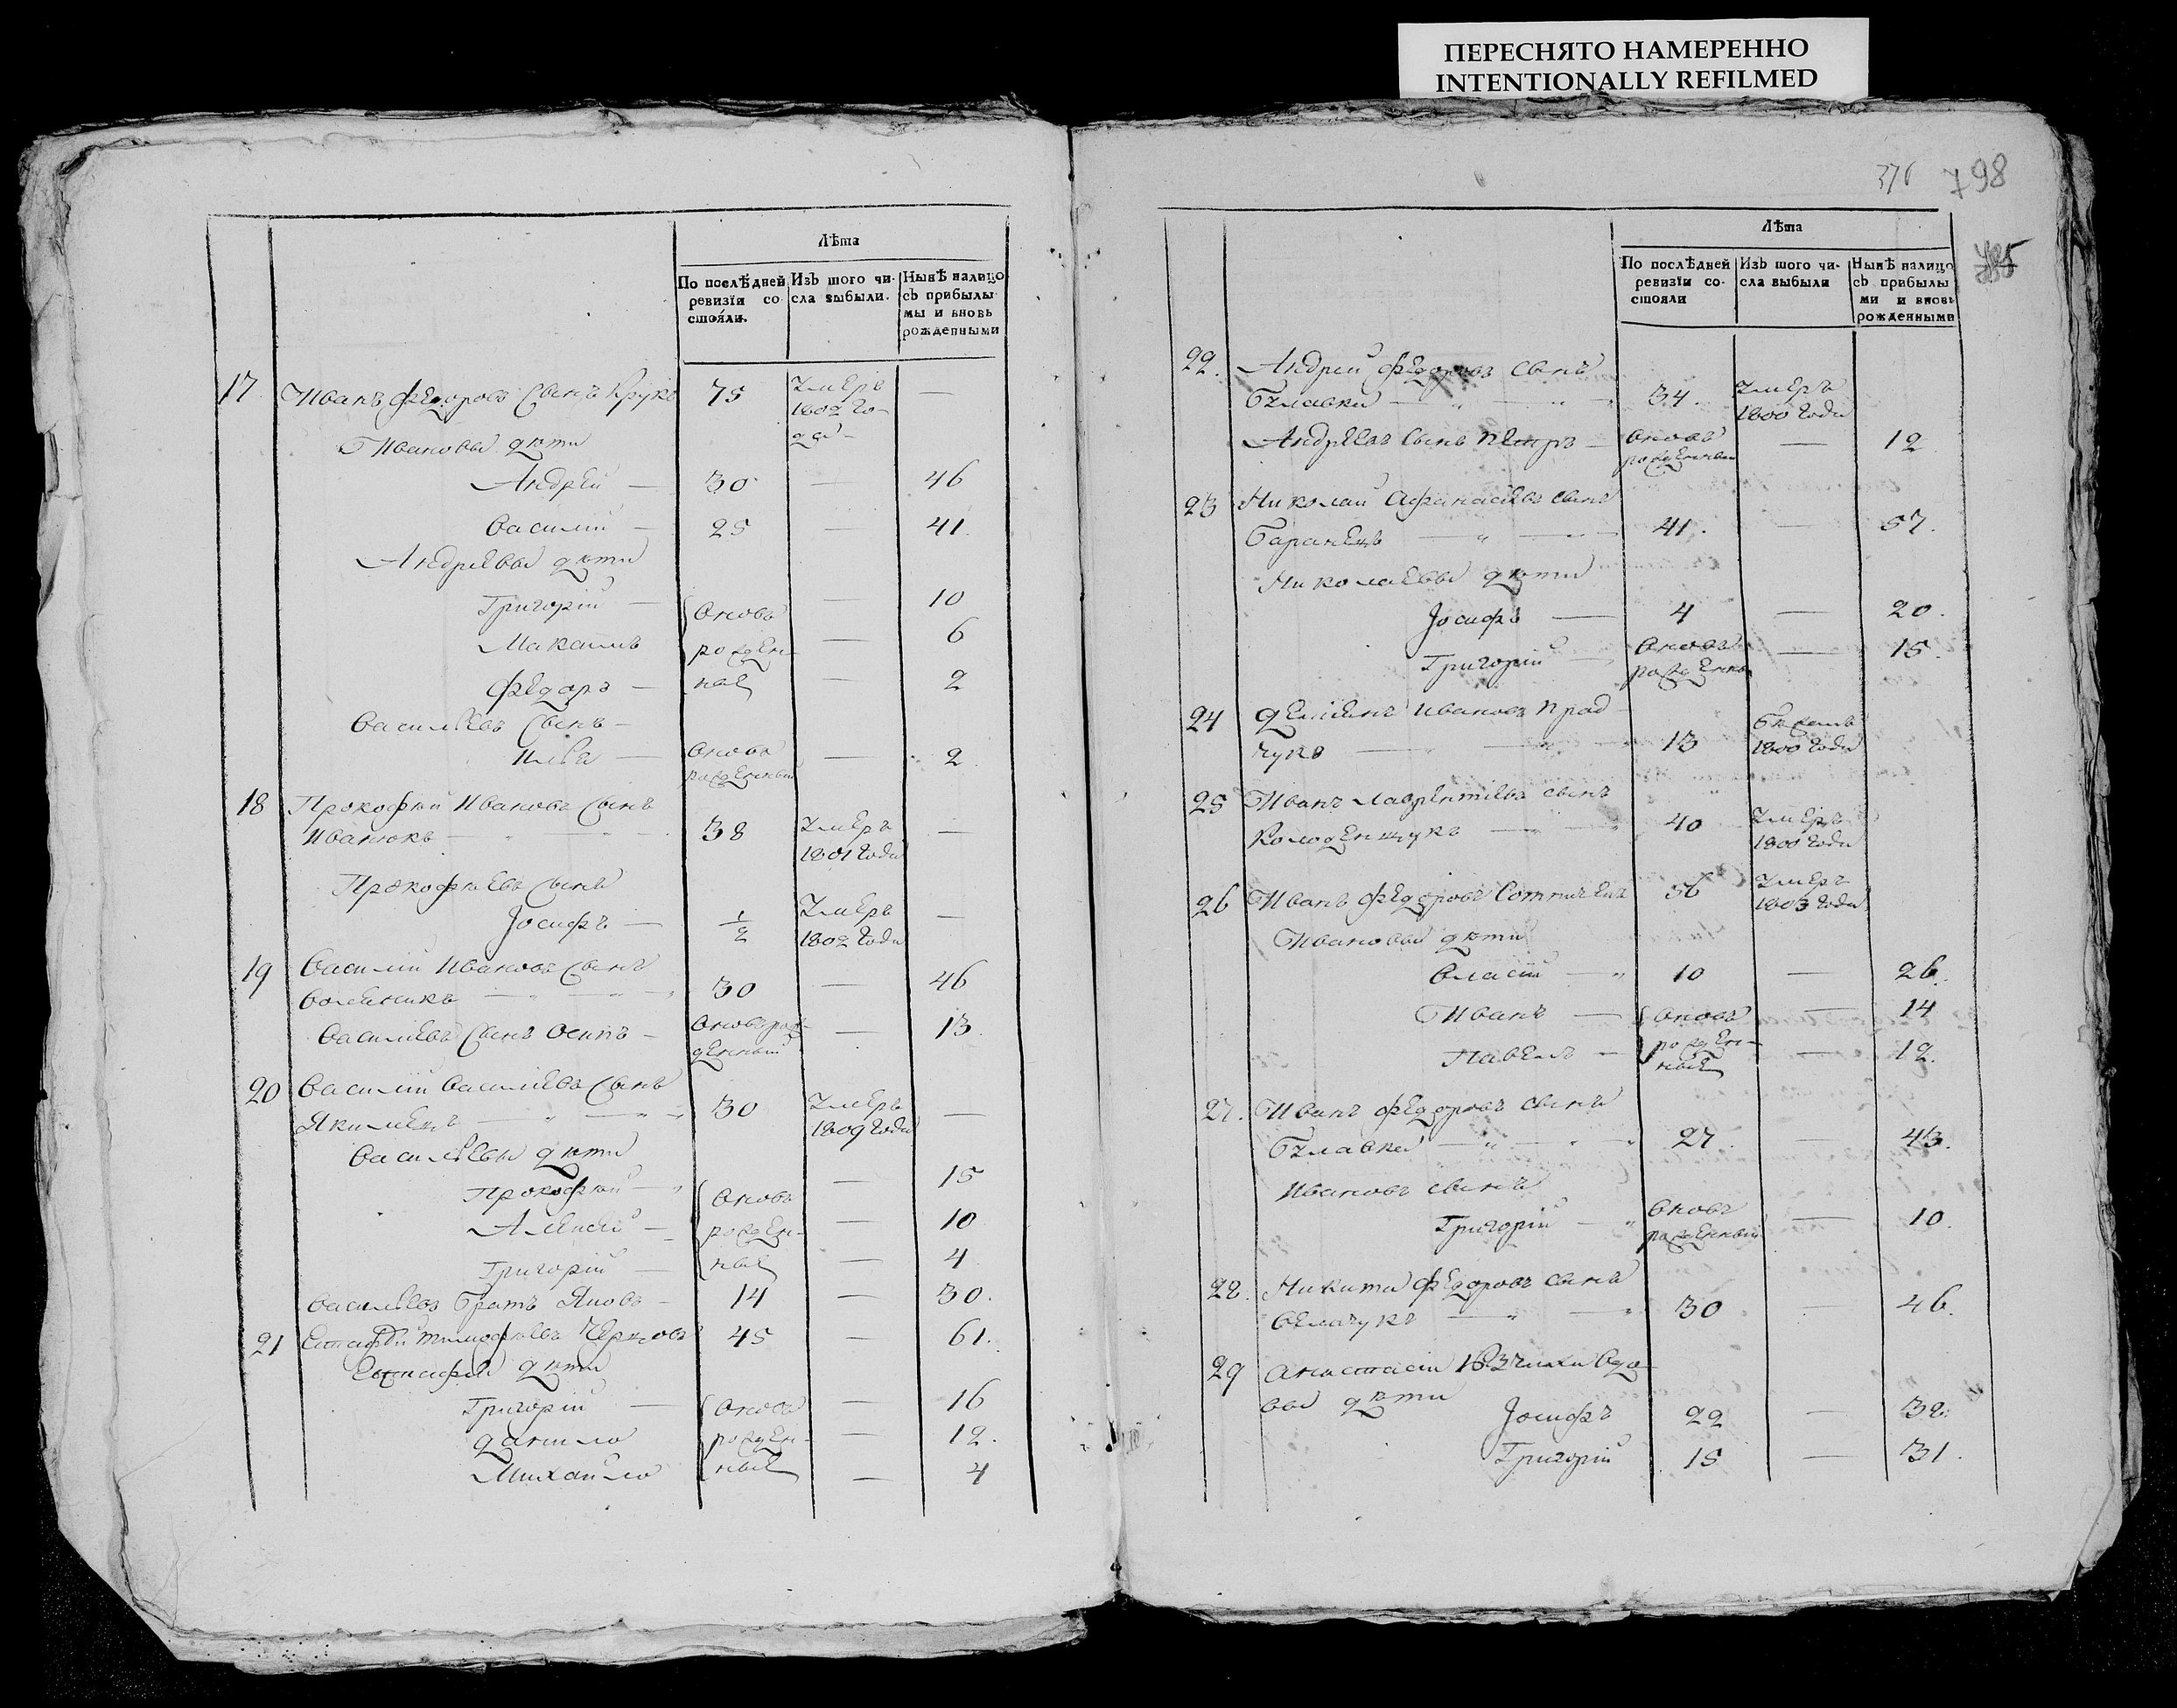 ПЕРЕСНЯТО НАМЕРЕННО
INTENTIONALLY REFILMED
Лѣта
По послѣдней ревизїи состояли.
Изъ того числа выбыли.
Нынѣ налицо съ прибылымы и вновь рожденными
17 Иванъ Федоровъ сынъ Крукъ 75 умеръ 1802 года —
Ивановы дѣти
Андрей — 30 — 46
Василий — 25 — 41
Андреевы дѣти
Григорій — вновь — 10
Максимъ рожден- — 6
Федоръ — ные — 2
Васильевъ сынъ —
Илья — вновь рожденный — 2
18 Прокофѣй Ивановъ сынъ
Иванюкъ — 38 умеръ 1801 года —
Прокофѣевъ сынъ
Јосифъ — 1/2 умеръ 1802 года —
19 Василій Ивановъ сынъ
30 — 46
Василіевъ сынъ Осипъ — вновь рожденный — 13
20 Василій Василіевъ сынъ
Якимецъ — 30 умеръ 1809 года —
Васильевы дѣти
Прокофѣй — вновь — 15
Алексей — рожден- — 10
Григорій — ные — 4
Васильевъ братъ Яковъ — 14 — 30.
21 Тимофѣевъ 45 — 61.
дѣти
Григорій — вновь — 16
Данило рожден- — 12.
Михайло ные — 4
376 798
Лѣта
По послѣдней ревизїи состояли
Изъ того числа выбыли
Нынѣ налицо съ прибылыми и вновь рожденными
22. Андрей Федоровъ сынъ
Булавка — 34. умеръ 1800 года
Андреевъ сынъ Петръ — вновь рожденный — 12
23 Николай Афанасіевъ сынъ
Баранецъ — 41. — 57.
Николаевы дѣти
Јосифъ — 4 — 20.
Григорій — вновь рожденны — 15.
24 Ивановъ Прад-
чукъ — 13 бѣжалъ 1800 года
25 Иванъ Лаврентіевъ сынъ
Колоденщукъ — 40 умеръ 1800 года
26 Иванъ Федоровъ 56 умеръ 1803 года
Ивановы дѣти
Власій — 10 — 26.
Иванъ — вновь — 14
Павелъ — рожденные — 12.
27. Иванъ Федоровъ сынъ
Булавка — 27 — 43.
Ивановъ сынъ
Григорій — вновь рожденный — 10.
28. Никита Федоровъ сынъ
30 46.
29 Анастасіи вдо-
вы дѣти
Јосифъ 22 — 38.
Григорій 15 — 31.